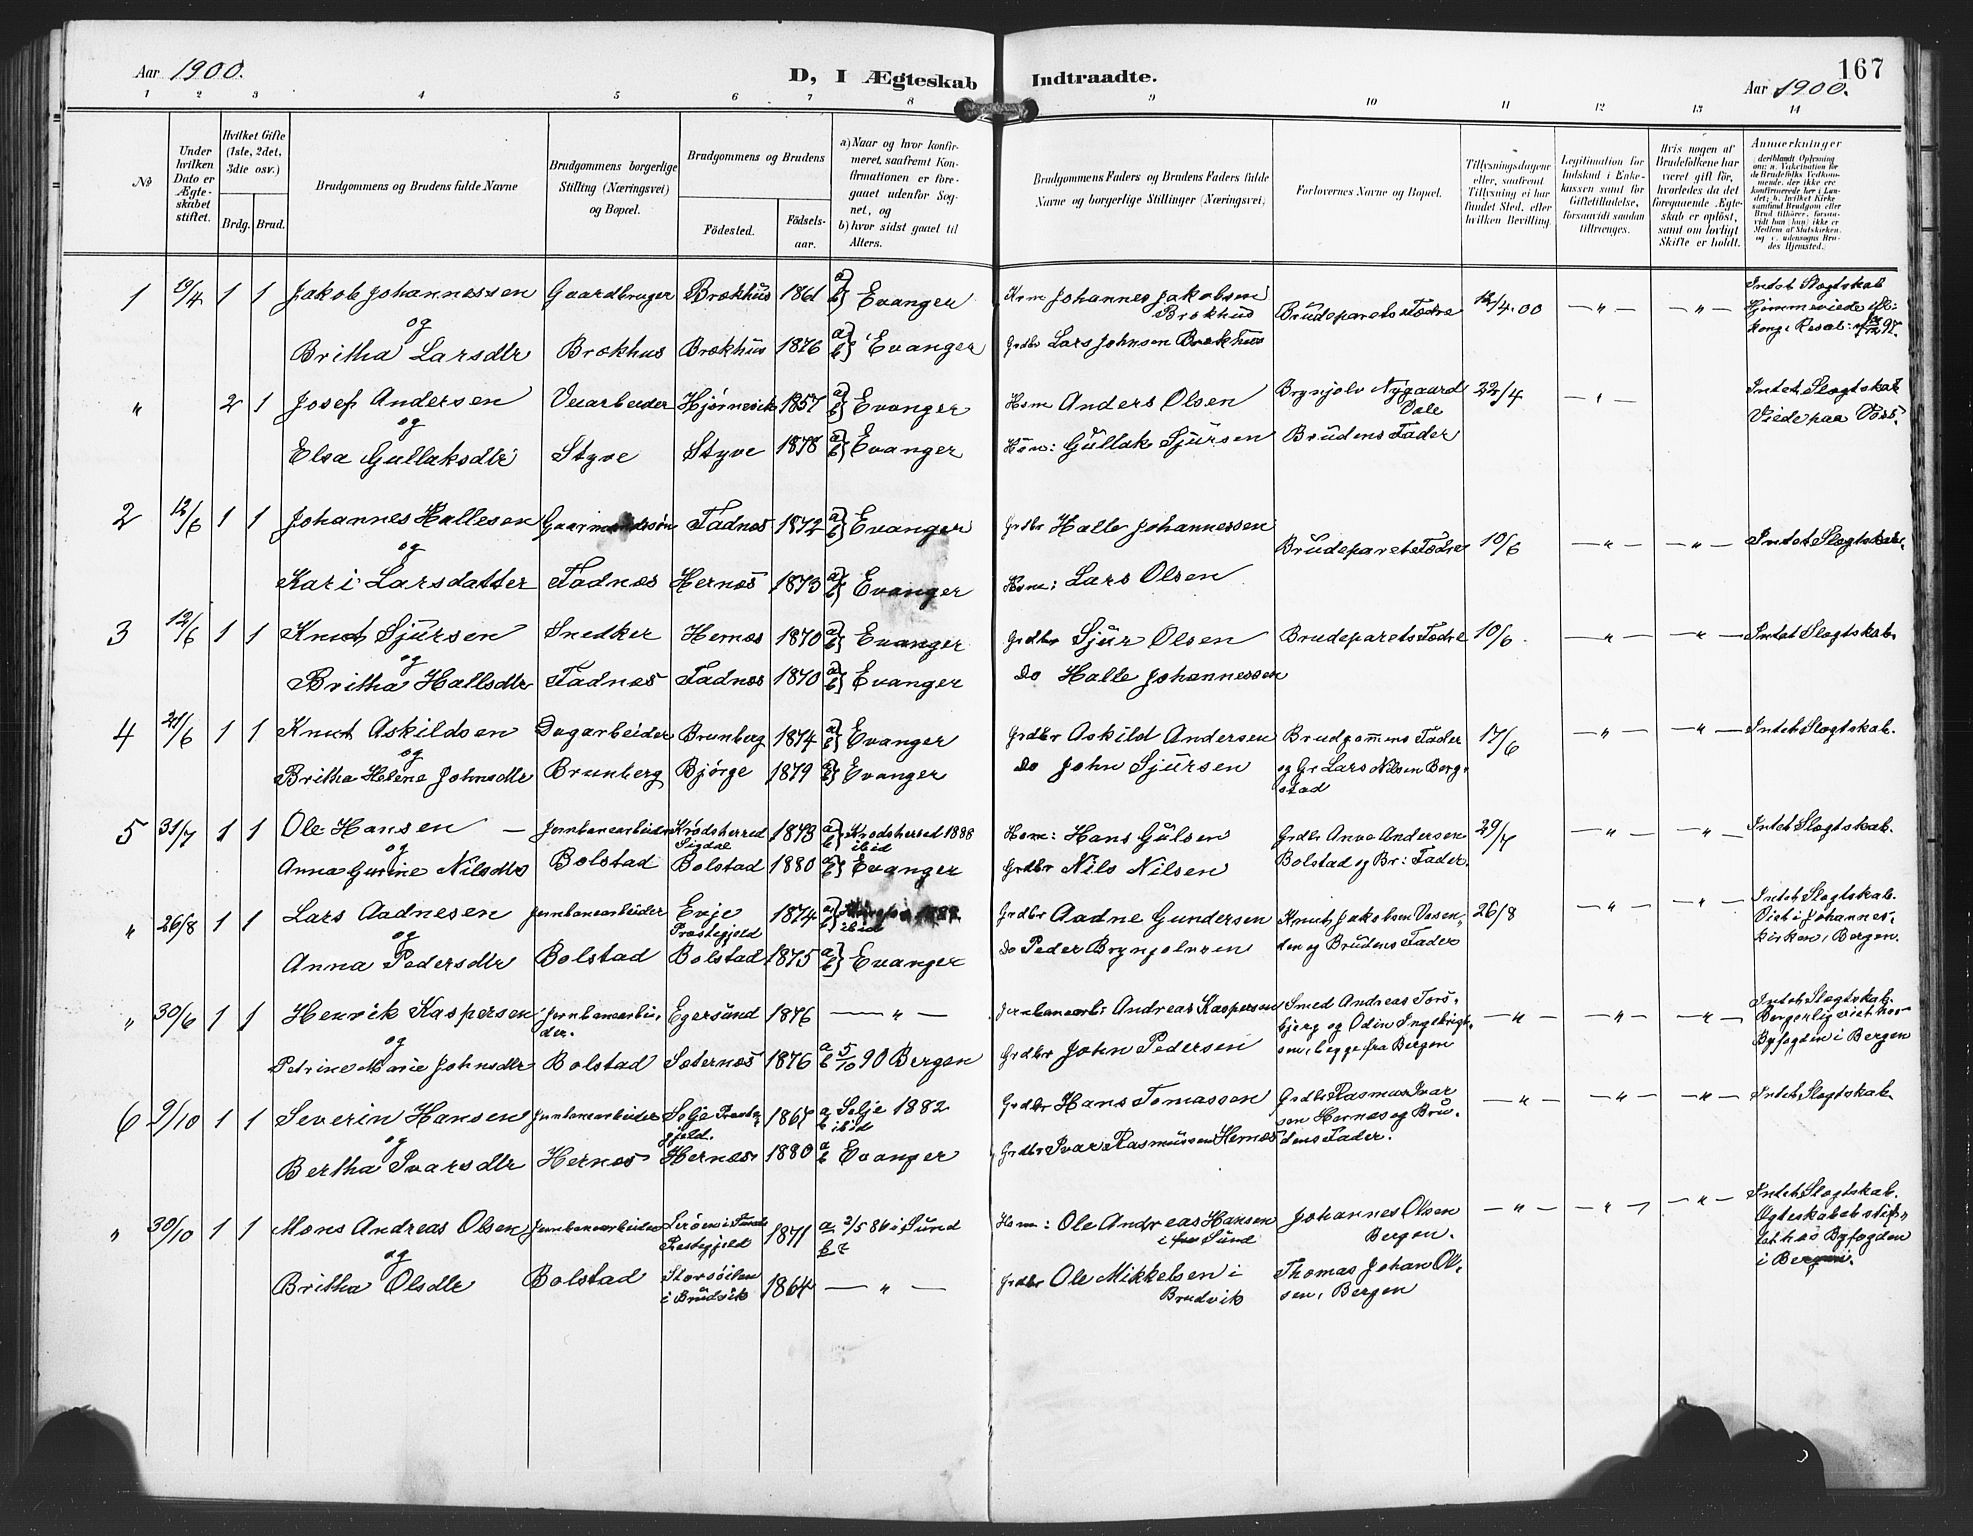 Aar 1900.
D, I Ægteskab Indtraadte.
167
Aar 1900.
1 2 3 4 5 6 7 8 9 10 11 12 13 14
No
Under hvilken Dato er Ægteskabet stiftet.
Hvilket Gifte (1ste, 2det, 3die osv.)
Brdg. Brud.
Brudgommens og Brudens fulde Navne
Brudgommens borgerlige Stilling (Næringsvei) og Bopæl.
Brudgommens og Brudens
Fødested.
Fødselsaar.
a) Naar og hvor konfirmeret, saafremt Konfirmationen er foregaaet udenfor Sognet, og
b) hvor sidst gaaet til Alters.
Brudgommens Faders og Brudens Faders fulde Navne og borgerlige Stillinger (Næringsvei)
Forlovernes Navne og Bopæl.
Tillysningsdagene eller, saafremt Tillysning ei har fundet Sted, efter hvilken Bevilling.
Legitimation for Indskud i Enkekassen samt for Giftetilladelse, forsaavidt saadan tiltrænges.
Hvis nogen af Brudefolkene har været gift før, hvorledes da det foregaaende Ægteskab er opløst, samt om lovligt Skifte er holdt.
Anmærkninger
1 19/4 1 1 Jakob Johannessen Gaardbruger Brækhus 1861 a) b) Evanger Hsm Johannes Jakobsen Brækhus Brudeparets Fædre 16/4.00 — " — — " — Intet Slægtskab
og Hjemmeviede
Britha Larsdtr Brækhus Brækhus 1876 a) b) Evanger Grdbr Lars Johnsen Brækhus
" 2 1 Josef Andersen Veiarbeider Hjørnevik 1857 a) b) Evanger Hsm Anders Olsen Brynjolv Nygaard Dale 22/4 — " — Intet Slægtskab
og Viede paa Voss.
Elsa Gullaksdtr Styve Styve 1878 a) b) Evanger Hsm: Gullak Sjursen Brudens Fader
2 12/6 1 1 Johannes Hallesen Gaarmandssøn Fadnes 1872 a) b) Evanger Grdbr Halle Johannessen Brudeparets Fædre 10/6 — " — — " — Intet Slægtskab.
og
Kari Larsdatter Fadnes Hernes 1873 a) b) Evanger Hsm: Lars Olsen
3 12/6 1 1 Knut Sjursen Snedker Hernes 1870 a) b) Evanger Grdbr Sjur Olsen Brudeparets Fædre 10/6. — " — — " — Intet Slægtskab.
og
Britha Hallsdtr Fadnes Fadnes 1870 a) b) Evanger Do Halle Johannessen
4 21/6 1 1 Knut Askildsen Dagarbeider Brunberg 1874 a) b) Evanger Grdbr Askild Andersen Brudgommens Fader 17/6 — " — — " — Intet Slægtskab.
og
Britha Helene Johnsdtr Brunberg Bjørge 1879 a) b) Evanger Do John Sjursen og Gr Lars Nilsen Bergstad
5 31/7 1 1 Ole Hansen — Jernbanearbeider Krødsherred Sigdal 1873 a) b) Krødsherred 1888 ibid Hsm: Hans Gulsen Grdbr Anve Andersen 29/7 — " — — " — Intet Slægtskab.
og
Anna Gurine Nilsdtr Bolstad Bolstad 1880 a) b) Evanger Grdbr Nils Nilsen Bolstad og Br: Fader.
" 26/8 1 1 Lars Aadnesen Jernbanearbeider Evje Præstegjeld 1874 a) b) ibid Grdbr Aadne Gundersen Knut Jakobsen 26/8 — " — — " — Intet Slægtskab.
og Viet i Johanneskirken i Bergen.
Anna Pedersdtr Bolstad Bolstad 1875 a) b) Evanger Do Peder Brynjolvsen og Brudens Fader
" 30/6 1 1 Henrik Kaspersen Jernbanearbeider. Egersund 1876 — " — Jernbanearb: Andreas Kaspersen Smed Andreas Torsbjerg og Odin Ingebrigtsen, begge fra Bergen — " — — " — — " — Intet Slægtskab.
og Borgerlig viet hos Byfogden i Bergen
Petrine Marie Johnsdtr Bolstad Sæternes 1876 a b 5/10 90 Bergen Grdbr John Pedersen
6 9/10 1 1 Severin Hansen Jernbanearbeider Selje Præstegjeld. 1867 a b Selje 1882 ibid Grdbr Hans Tomassen Grdbr Rasmus Ivarsen Hernes og Brudens Fader. — " — — " — — " — Intet Slægtskab.
og
Bertha Ivarsdtr Hernes Hernes 1880 a b Evanger Grdbr Ivar Rasmussen Hernes
" 30/10 1 1 Mons Andreas Olsen Jernbanearbeider i Sunds Præstegjeld 1871 a 2/5 86 i Sund b ? Hsm: Ole Andreas Hansen i Sund Johannes Olsen Bergen. — " — — " — — " — Intet Slægtskab.
og Ægteskabet stiftet hos Byfogden i Bergen.
Britha Olsdtr Bolstad i Brudvik 1864 — " — Grdbr Ole Mikkelsen i Brudvik Thomas Johan Olsen, Bergen